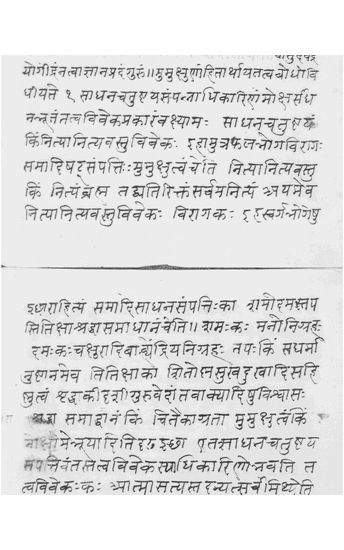 योगींद्रंनत्वाज्ञानप्रदंगुरुं॥मुमुक्षुणांहितार्थायतत्वबोधोवि
धीयते १ साधनचतुष्टयसंपन्नाधिकारिणांमोक्षसाध
नभूतंतत्वविवेकप्रकारंवक्ष्यामः साधनचतुष्टयं
किंनित्यानित्यवस्तुविवेकः इहामुत्रफलभोगविरागः
समादिषट्संपत्तिःमुमुक्षुत्वंचेति नित्यानित्यवस्तु
किं नित्यंब्रह्म तद्व्यतिरिक्तंसर्वमनित्यं अयमेव
नित्यानित्यवस्तुविवेकः विरागकः इहस्वर्गभोगेषु
इछाराहित्यं समादिसाधनसंपत्तिःका शमोदमस्तप
स्तितिक्षाश्रद्धासमाधानंचेति॥शमःकः मनोनिग्रहः
दमःकःचक्षुरादिबाह्येंद्रियनिग्रहः तपःकिं स्वधर्मा
नुष्ठानमेव तितिक्षाका शितोष्णसुखदुखादिसहि
ष्णुत्वं श्रद्धाकीदृशीगुरुवेदांतवाक्यादिषुविश्वासः
श्रद्धा समाधानं किं चितैकाग्रता मुमुक्षुत्वंकिं
मोक्षोमेभूयादितिदृढइछा एतत्साधनचतुष्टय
संपत्तिवंतस्तत्वविवेकस्याधिकारिणोभवंति त
त्वविवेकःकः आत्मासत्यस्तदन्यत्सर्वंमिथ्येति